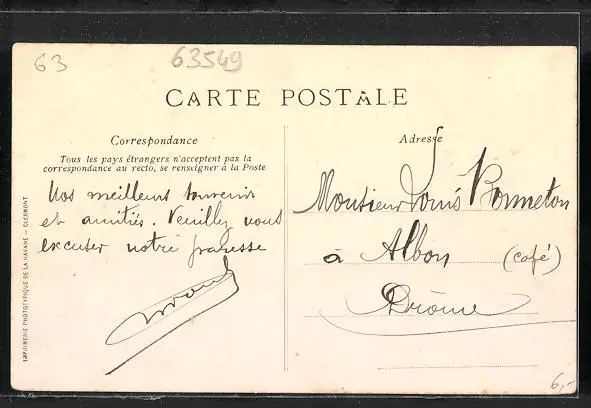 63
63549
CARTE POSTALE
Correspondance
Tous les pays étrangers n'acceptent pas la
correspondance au recto, se renseigner à la Poste
Nos meilleurs souvenirs
et amitiés. Veuillez vous
excuser notre paresse
Adresse
Monsieur Louis Bonneton
à Albon (café)
Drôme
IMPRIMERIE PHOTOTYPIQUE DE LA HAVANE - CLERMONT
6,-